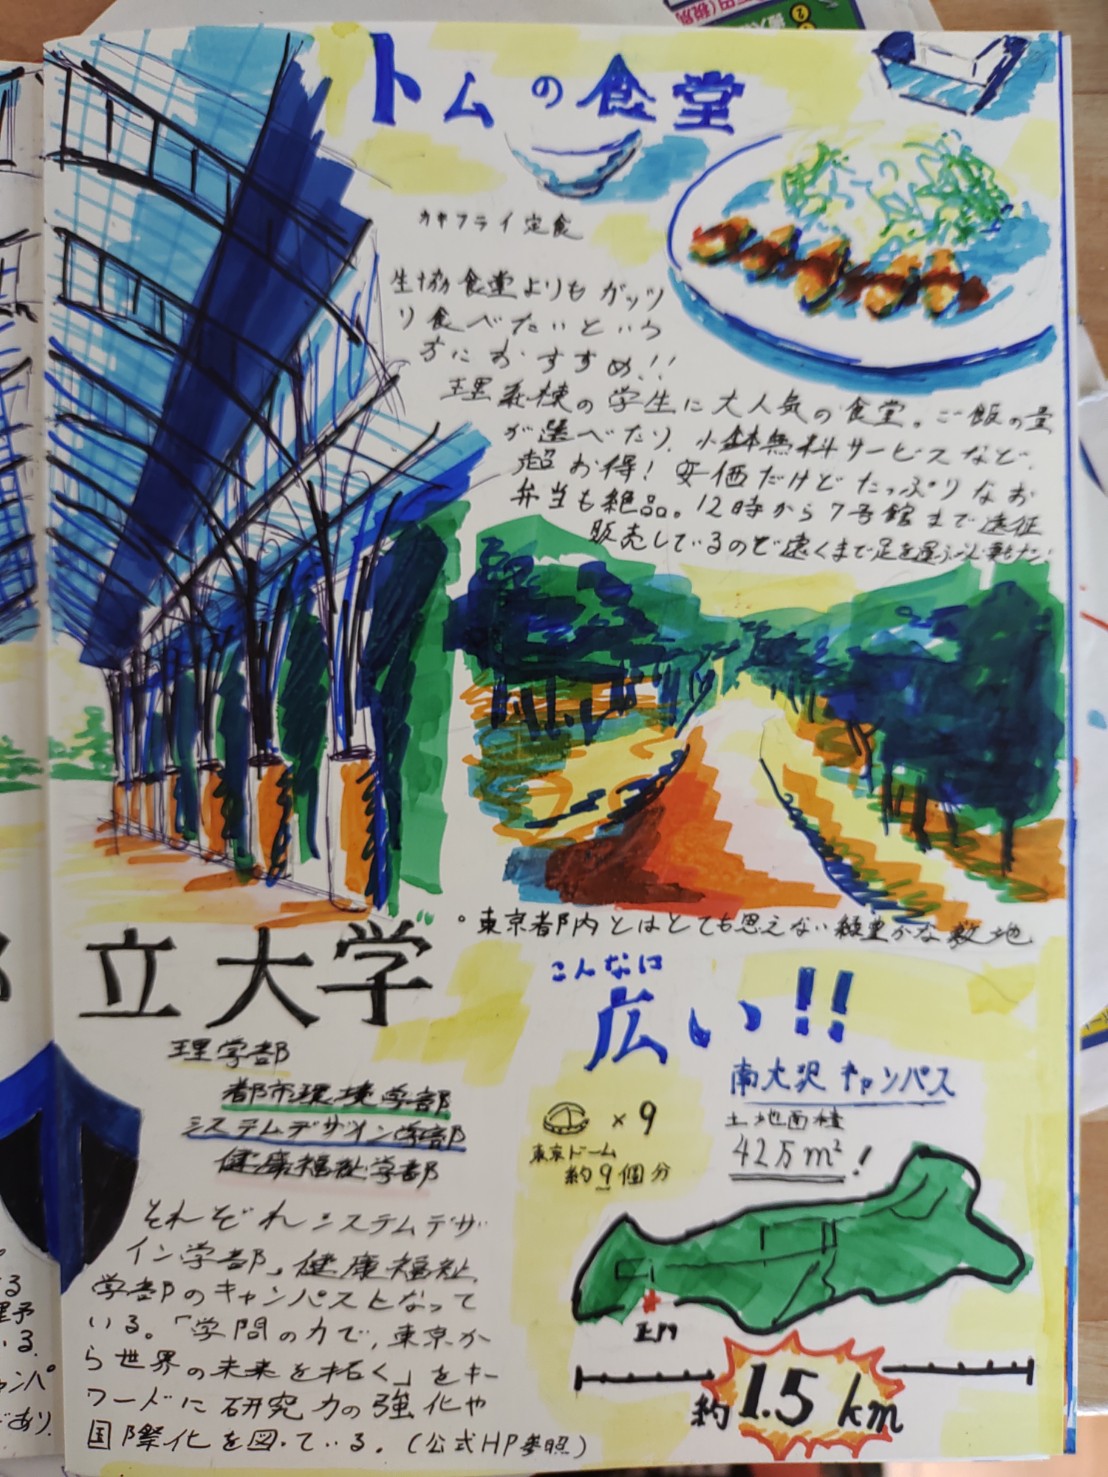 トムの食堂
カキフライ定食
生協食堂よりもガッツ
リ食べたいという
方におすすめ!!
理系棟の学生に大人気の食堂。ご飯の量
が選べたり、小鉢無料サービスなど、
超お得!安価だけどたっぷりなお
弁当も絶品。12時から7号館まで遠征
販売しているので遠くまで足を運ぶ必要なし
。東京都内とはとても思えない緑豊かな敷地
立大学
理学部
都市環境学部
システムデザイン学部
健康福祉学部
それぞれシステムデザ
イン学部、健康福祉
学部のキャンパスとなって
いる。「学問の力で、東京か
ら世界の未来を拓く」をキー
ワードに研究力の強化や
国際化を図っている。(公式HP参照)
こんなに
広い!!
×9
東京ドーム
約9個分
南大沢キャンパス
土地面積
42万m²!
正門
約1.5km